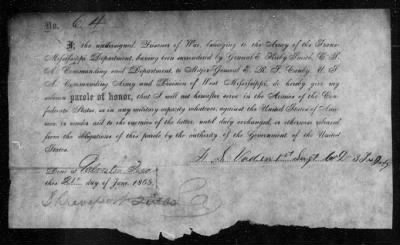 No. 64
I, the undersigned, Prisoner of War, belonging to the Army of the Trans-
Mississippi Department, having been surrendered by General E. Kirby Smith, C. S.
A. Commanding said Department, to Major-General E. R. S. Canby, U. S.
A. Commanding Army and Division of West Mississippi, do hereby give my
solemn parole of honor, that I will not hereafter serve in the Armies of the Con-
federate States, or in any military capacity whatever, against the United States of Ame-
rica, or render aid to the enemies of the latter, until duly exchanged, or otherwise released
from the obligations of this parole by the authority of the Government of the United
States.
1st Sergt Co D
Done at Galveston Texas
this day of June 1865.
Shreveport